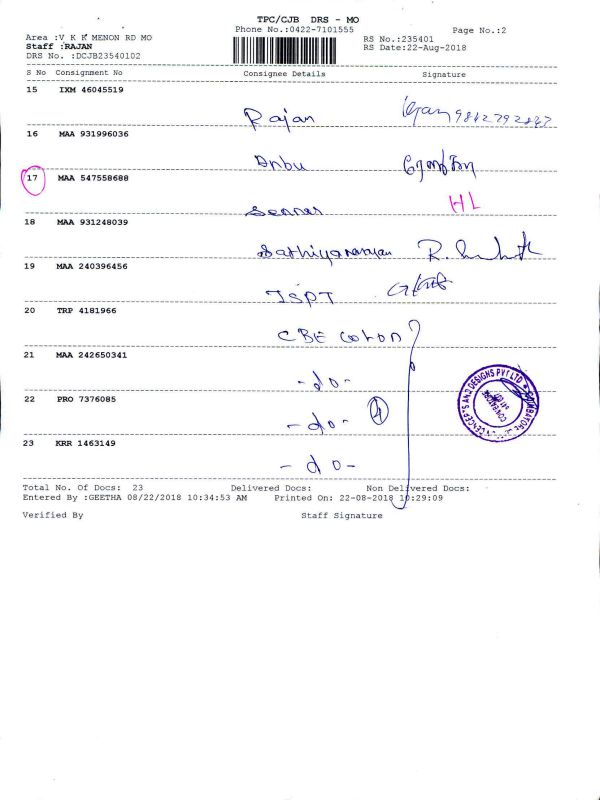 TPC/CJB DRS - MO
Phone No.:0422-7101555
Page No.:2
Area :V K K MENON RD MO
Staff :RAJAN
DRS No. :DCJB23540102
RS No.:235401
RS Date:22-Aug-2018
S No Consignment No Consignee Details Signature
15 IXM 46045519
Rajan
16 MAA 931996036
Anbu
17 MAA 547558688
HL
18 MAA 931248039
Sathiyanarayan
19 MAA 240396456
JSPT
20 TRP 4181966
CBE
21 MAA 242650341
- do -
22 PRO 7376085
- do - 4
23 KRR 1463149
- do -
Total No. Of Docs: 23 Delivered Docs: Non Delivered Docs:
Entered By :GEETHA 08/22/2018 10:34:53 AM Printed On: 22-08-2018 10:29:09
Verified By Staff Signature